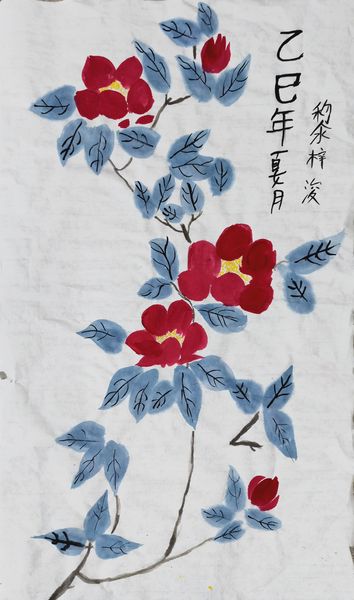 乙巳年夏月
黎梓浚